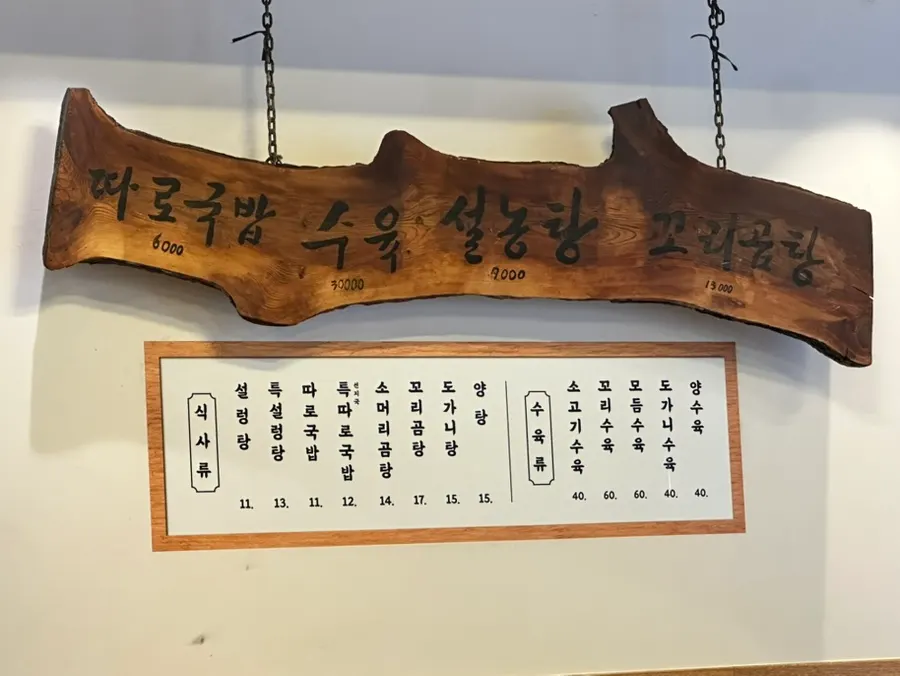 따로국밥
6000
수육
30000
설농탕
9000
꼬리곰탕
13000
식사류
설렁탕 11.
특설렁탕 13.
따로국밥 11.
선지국
특따로국밥 12.
소머리곰탕 14.
꼬리곰탕 17.
도가니탕 15.
양탕 15.
수육류
소고기수육 40.
꼬리수육 60.
모듬수육 60.
도가니수육 40.
양수육 40.